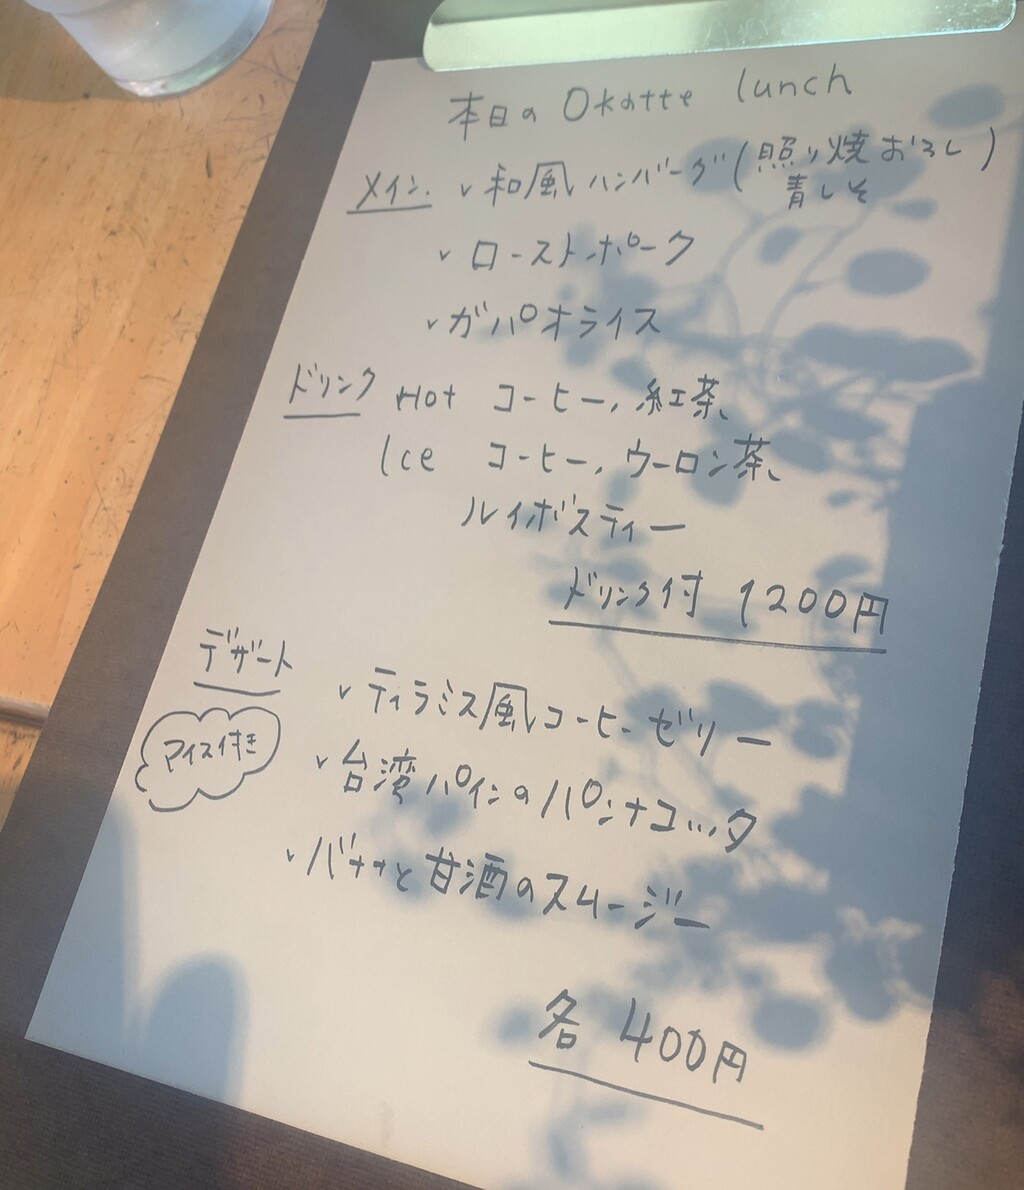 本日の Okatte lunch
メイン. ✓ 和風ハンバーグ(照り焼 おろし)
青しそ
✓ ローストポーク
✓ ガパオライス
ドリンク Hot コーヒー, 紅茶、
Ice コーヒー, ウーロン茶、
ルイボスティー
ドリンク付 1200円
デザート
✓ ティラミス風コーヒーゼリー
アイス付き
✓ 台湾パインのパンナコッタ
✓ バナナと甘酒のスムージー
各 400円